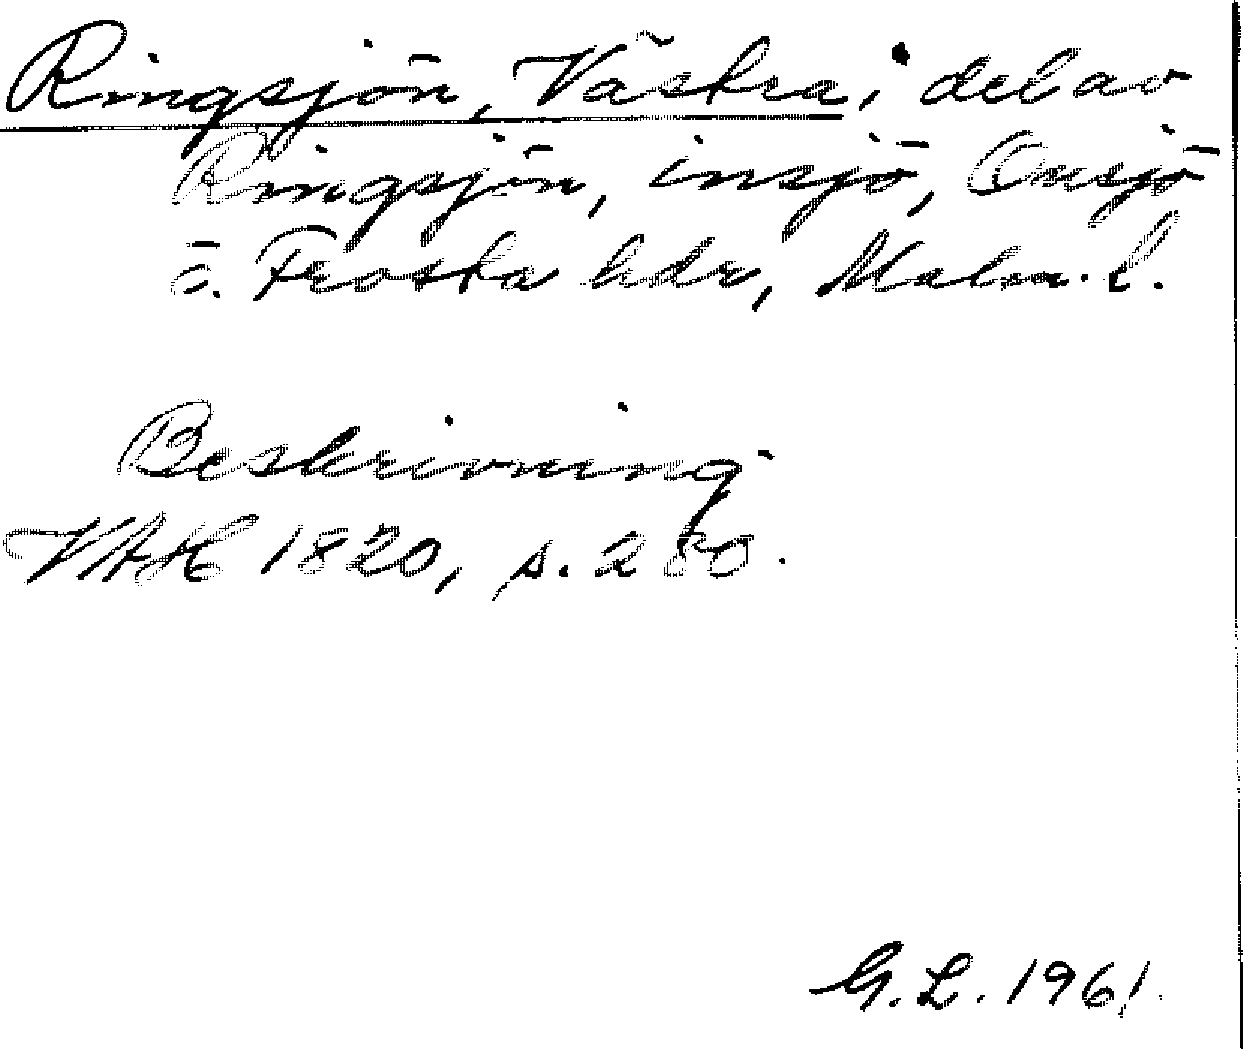 Ringsjön, Västra, del av
Ringsjön, insjö, Onsjö
o. Frosta hdr, Malm. l.
Beskrivning
VAH 1820, s. 280.
G. L. 1961.